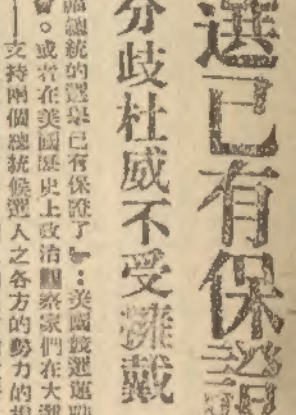 選已有保證
分歧杜威不受擁戴
總統的選舉已有保證了』：美國競選運動
會。或者在美國歷史上政治觀察家們在大選
——支持兩個總統候選人之各方的勢力的